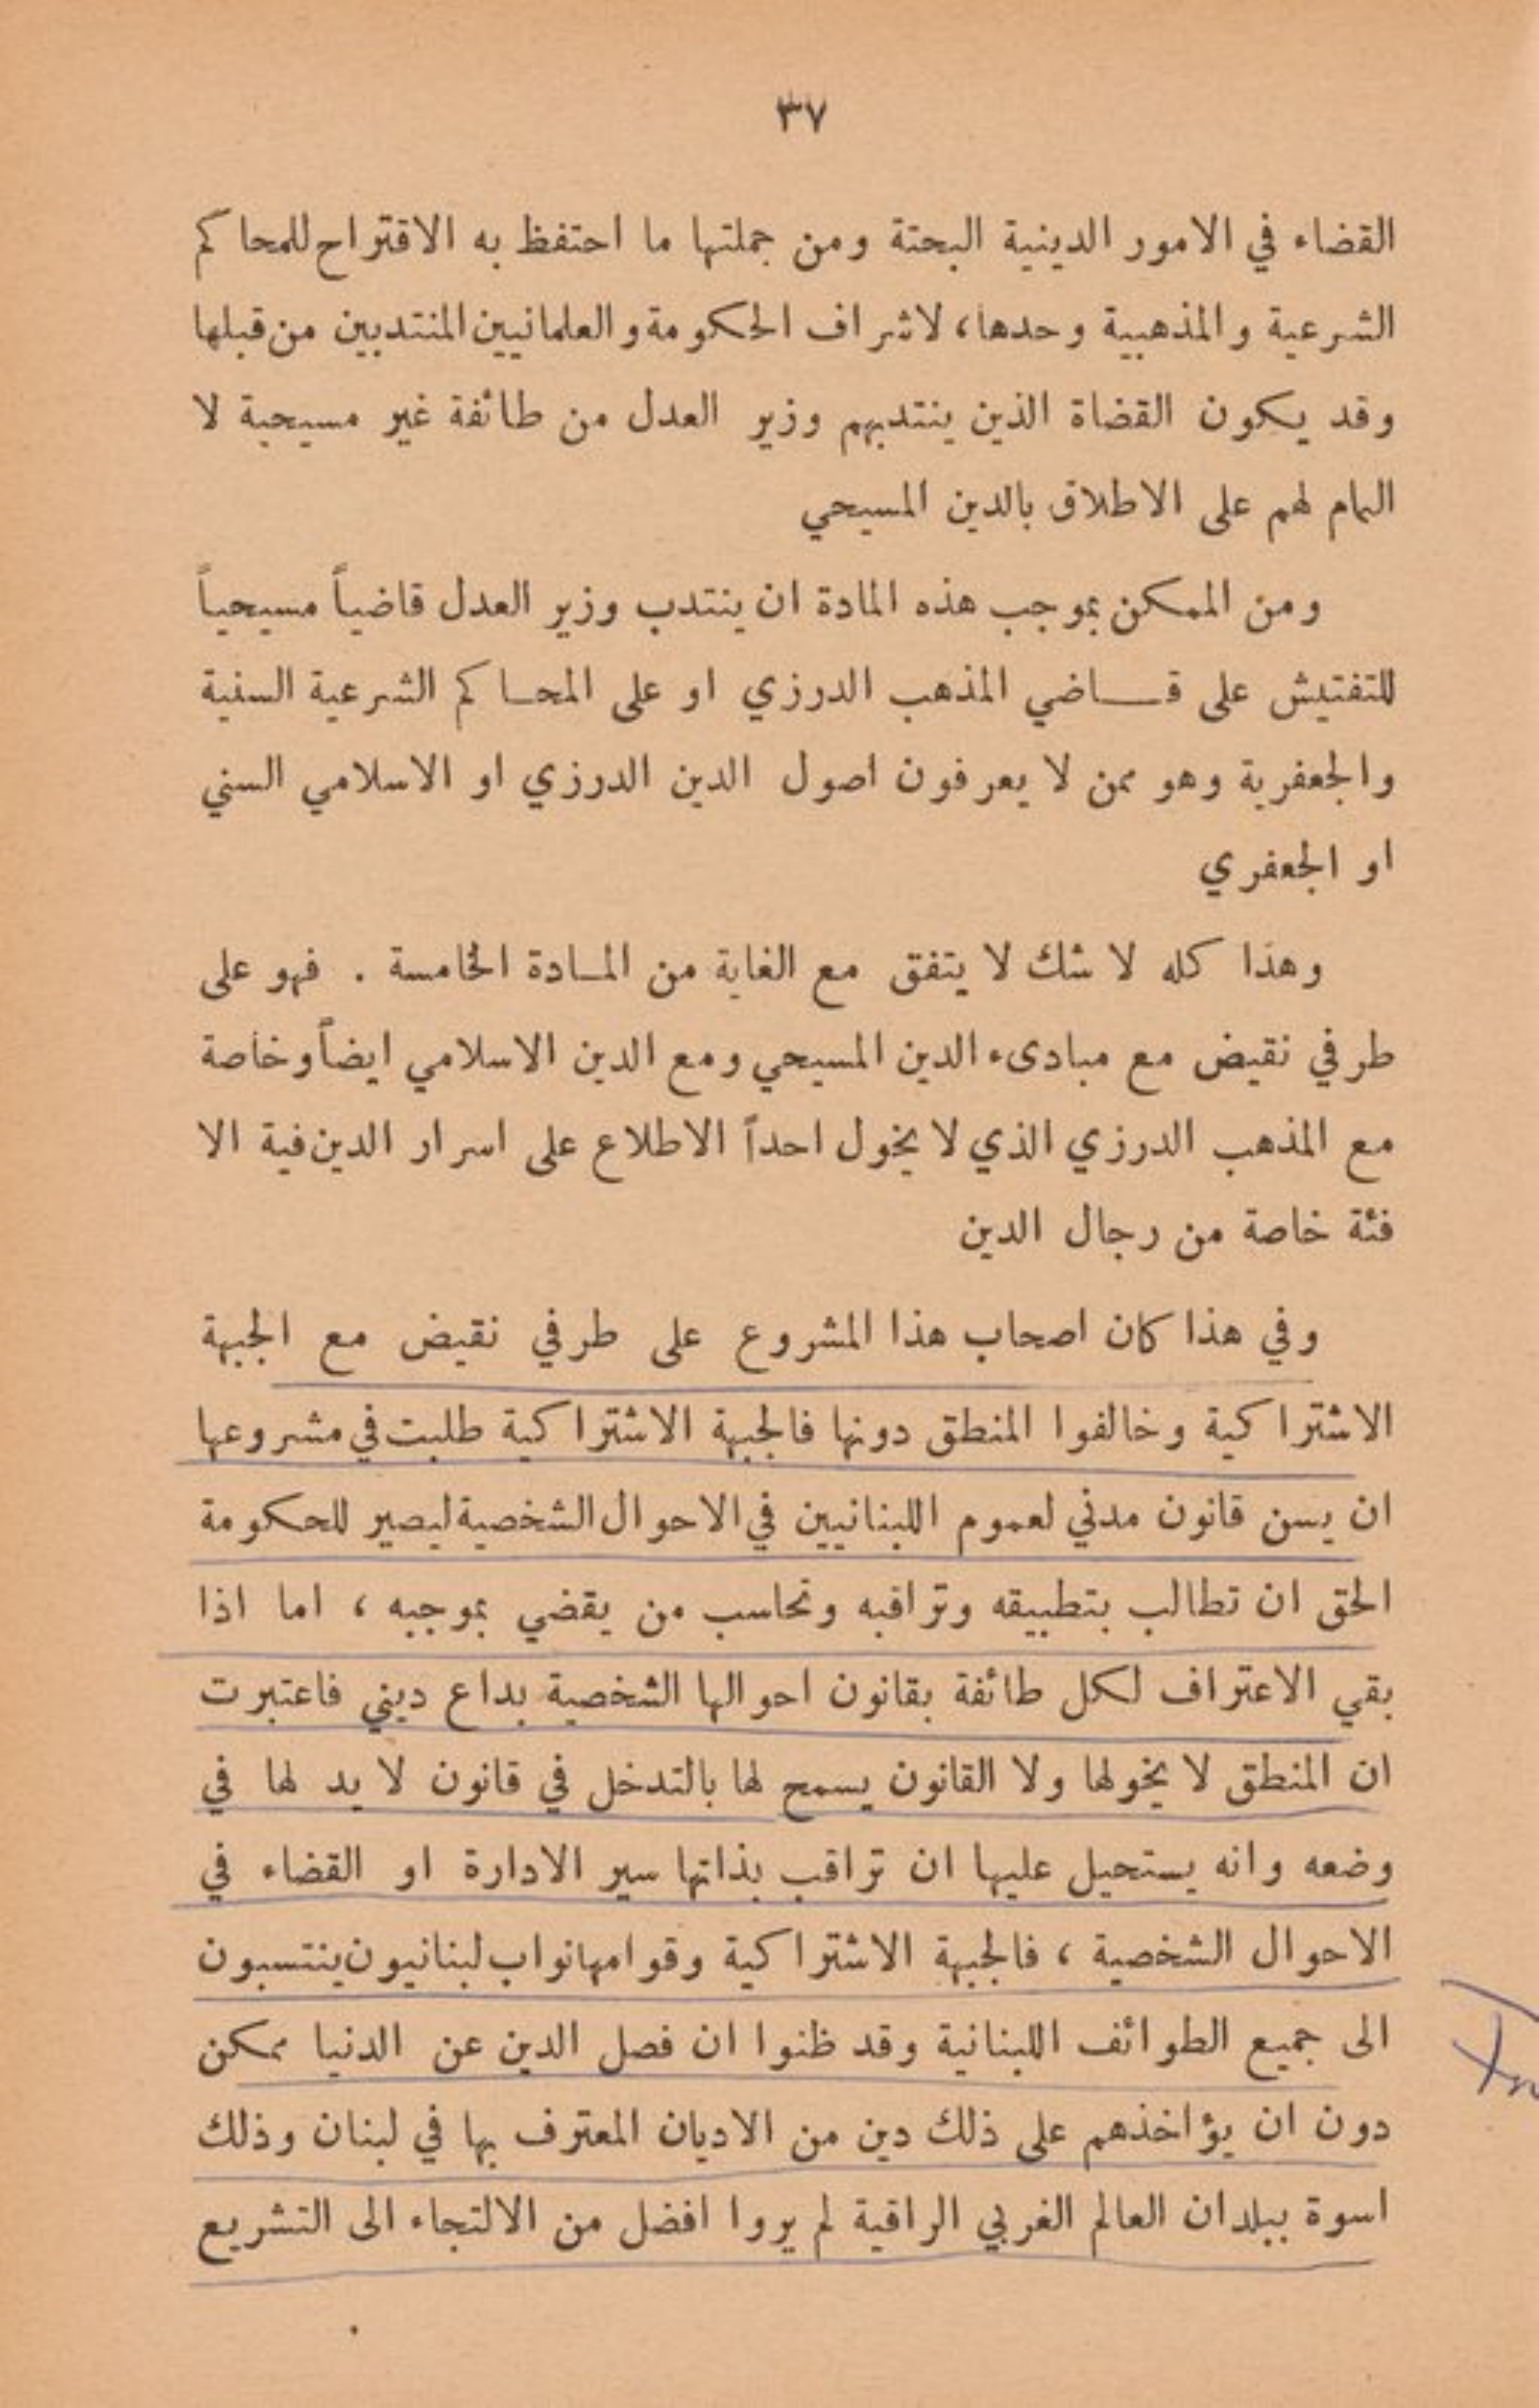 ٣٧
القضاء في الامور الدينية البحتة ومن جملتها ما احتفظ به الاقتراح للمحاكم
الشرعية والمذهبية وحدها، لاشراف الحكومة والعلمانيين المنتدبين من قبلها
وقد يكون القضاة الذين ينتدبهم وزير العدل من طائفة غير مسيحية لا
المام لهم على الاطلاق بالدين المسيحي
ومن الممكن بموجب هذه المادة ان ينتدب وزير العدل قاضياً مسيحياً
للتفتيش على قاضي المذهب الدرزي او على المحاكم الشرعية السنية
والجعفرية وهو ممن لا يعرفون اصول الدين الدرزي او الاسلامي السني
او الجعفري
وهذا كله لا شك لا يتفق مع الغاية من المادة الخامسة . فهو على
طرفي نقيض مع مبادىء الدين المسيحي ومع الدين الاسلامي ايضاً وخاصة
مع المذهب الدرزي الذي لا يخول احداً الاطلاع على اسرار الدين فية الا
فئة خاصة من رجال الدين
وفي هذا كان اصحاب هذا المشروع على طرفي نقيض مع الجبهة
الاشتراكية وخالفوا المنطق دونها فالجبهة الاشتراكية طلبت في مشروعها
ان يسن قانون مدني لعموم اللبنانيين في الاحوال الشخصية ليصير للحكومة
الحق ان تطالب بتطبيقه وتراقبه وتحاسب من يقضي بموجبه ، اما اذا
بقي الاعتراف لكل طائفة بقانون احوالها الشخصية بداع ديني فاعتبرت
ان المنطق لا يخولها ولا القانون يسمح لها بالتدخل في قانون لا يد لها في
وضعه وانه يستحيل عليها ان تراقب بذاتها سير الادارة او القضاء في
الاحوال الشخصية ، فالجبهة الاشتراكية وقوامها نواب لبنانيون ينتسبون
الى جميع الطوائف اللبنانية وقد ظنوا ان فصل الدين عن الدنيا ممكن
دون ان يؤاخذهم على ذلك دين من الاديان المعترف بها في لبنان وذلك
اسوة ببلدان العالم الغربي الراقية لم يروا افضل من الالتجاء الى التشريع